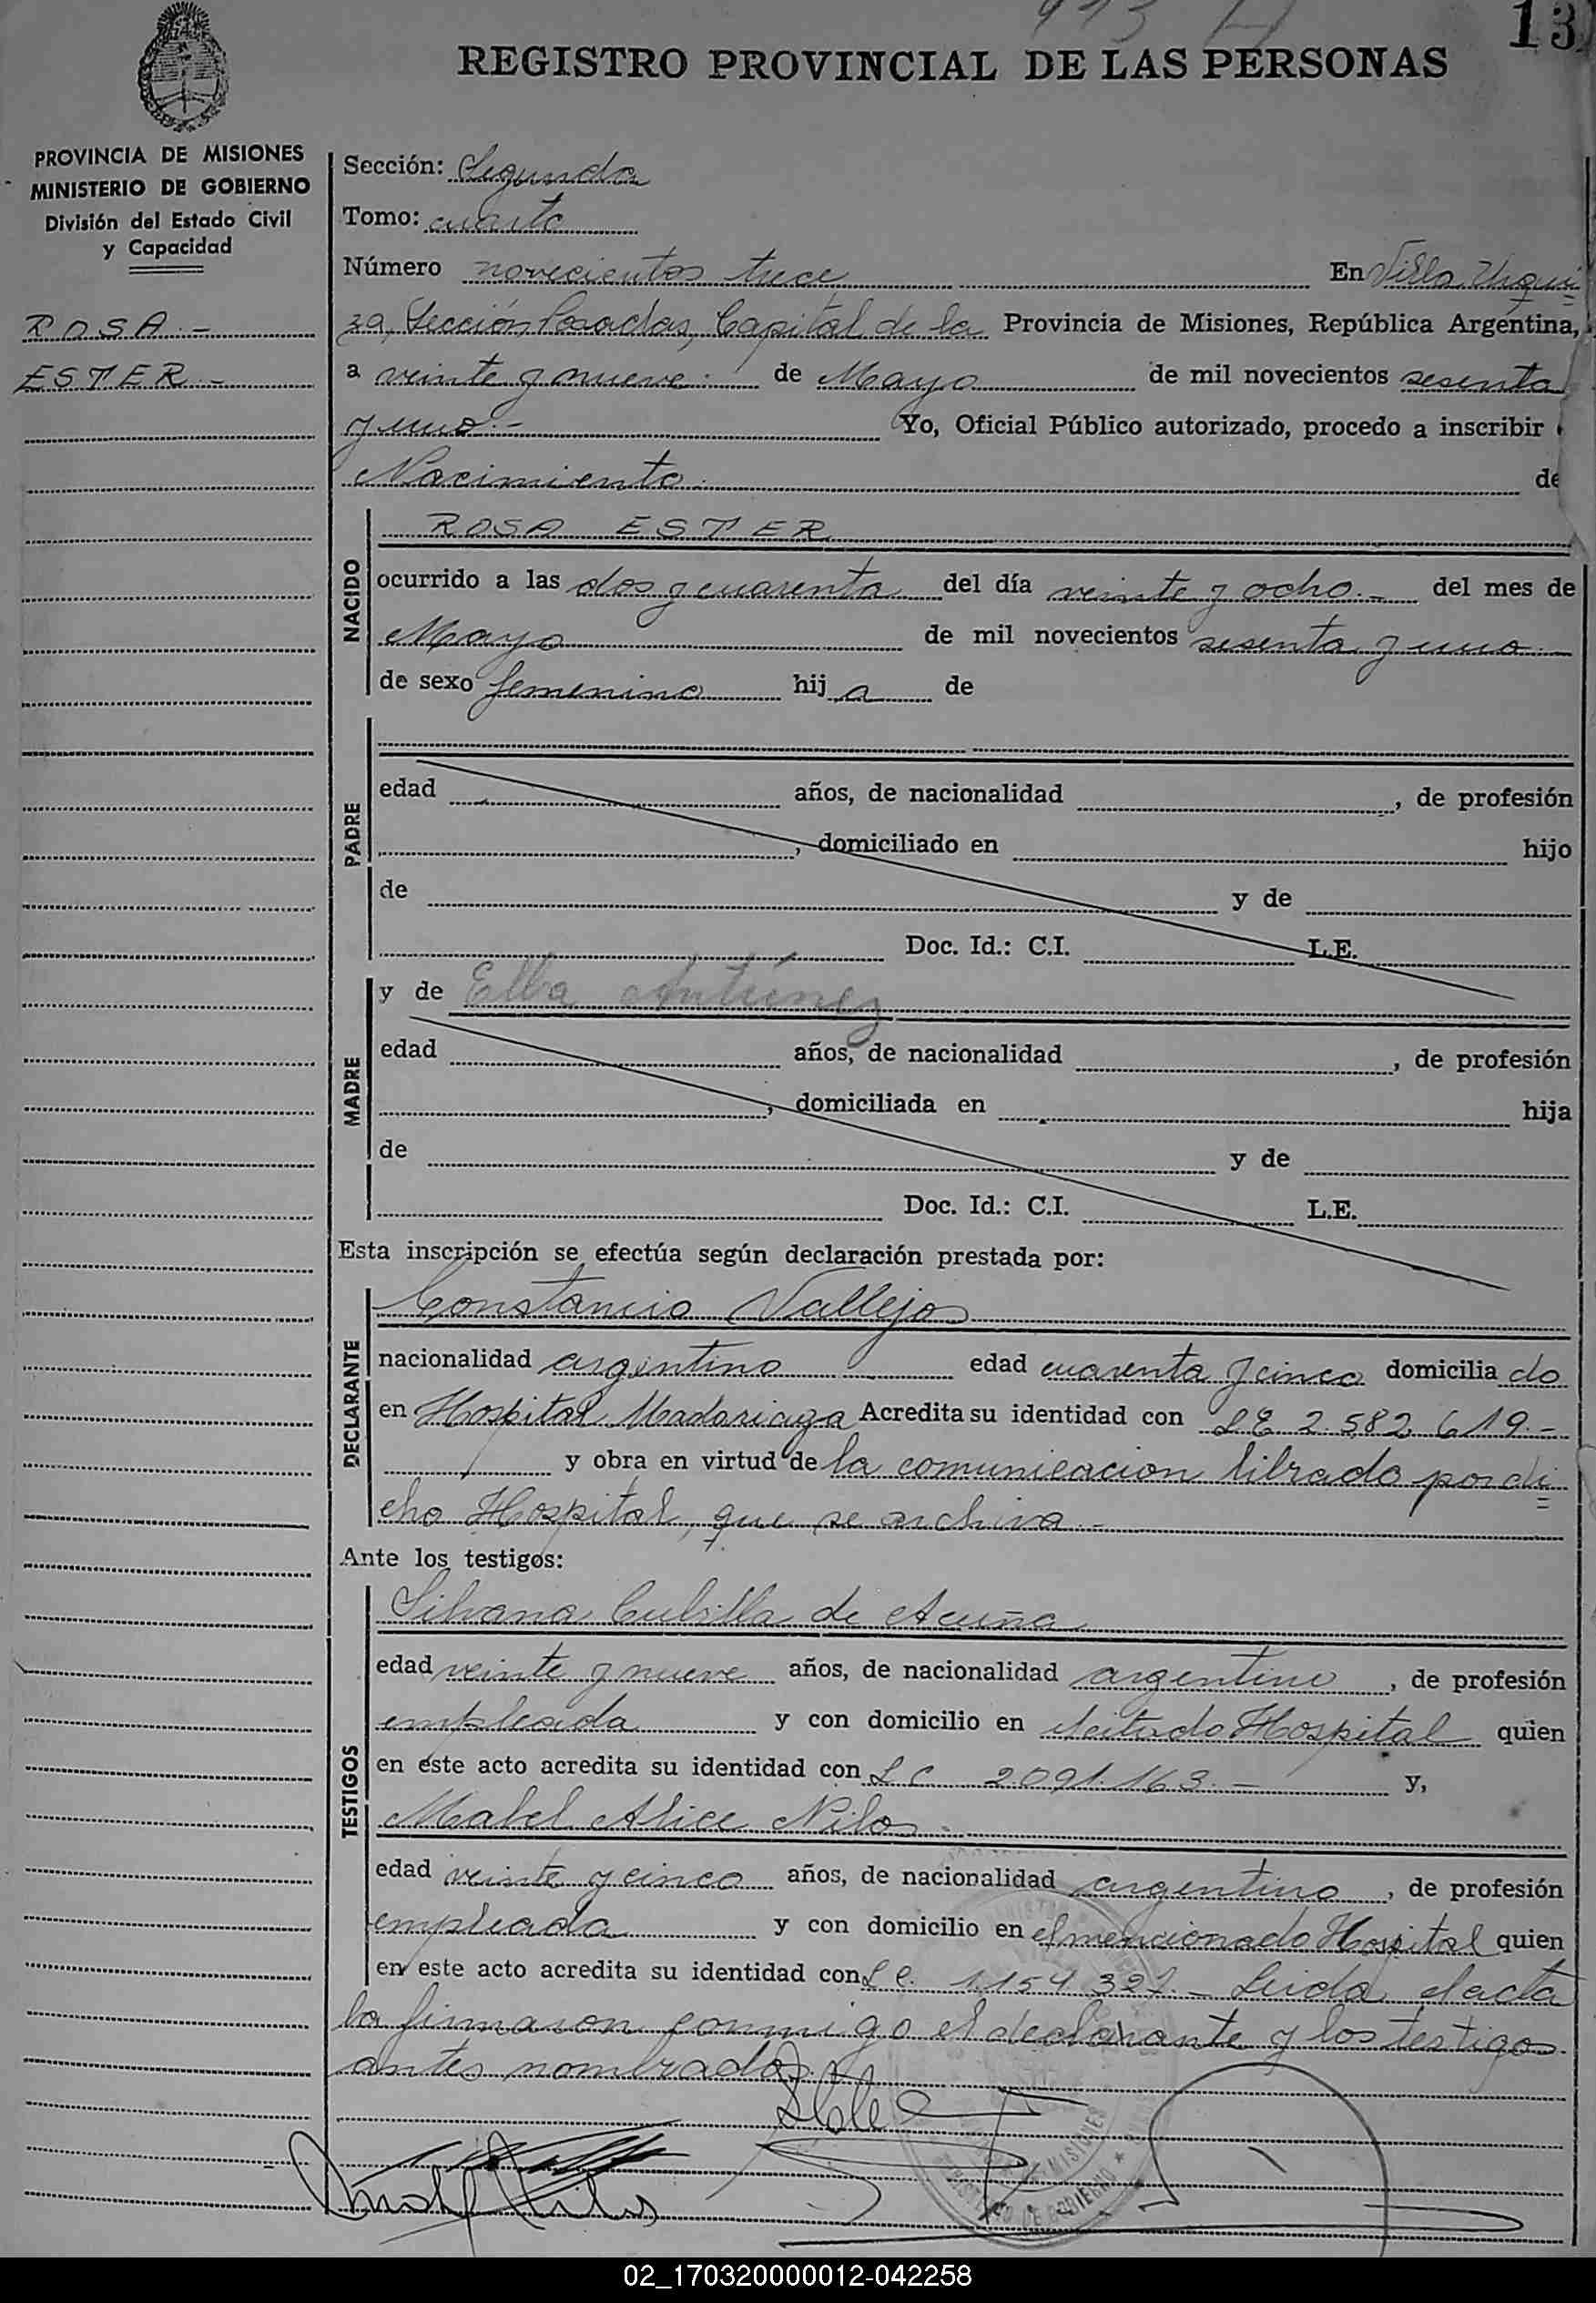 913
13
REGISTRO PROVINCIAL DE LAS PERSONAS
PROVINCIA DE MISIONES
MINISTERIO DE GOBIERNO
División del Estado Civil
y Capacidad
ROSA.-
ESTER.-
Sección: Segunda
Tomo: cuarto
Número novecientos trece En Villa Urqui
za, Sección Posadas, Capital de la Provincia de Misiones, República Argentina,
a veinte y nueve.- de Mayo de mil novecientos sesenta
y uno.- Yo, Oficial Público autorizado, procedo a inscribir
Nacimiento de
NACIDO
ROSA ESTER
ocurrido a las dos y cuarenta del día veinte y ocho.- del mes de
Mayo de mil novecientos sesenta y uno.-
de sexo femenino hij a de
PADRE
edad años, de nacionalidad , de profesión
, domiciliado en hijo
de y de
Doc. Id.: C.I. L.E.
MADRE
y de Elba Antúnez
edad años, de nacionalidad , de profesión
, domiciliada en hija
de y de
Doc. Id.: C.I. L.E.
Esta inscripción se efectúa según declaración prestada por:
DECLARANTE
Constancio Vallejos
nacionalidad argentino edad cuarenta y cinco domicilia do
en Hospital Madariaga Acredita su identidad con LE 2.582.619.-
y obra en virtud de la comunicacion librado por di
cho Hospital, que se archiva.-
Ante los testigos:
TESTIGOS
Silvana Cubilla de Acuña
edad veinte y nueve años, de nacionalidad argentino , de profesión
empleada y con domicilio en el citado Hospital quien
en este acto acredita su identidad con L C 2091.163.- y,
Mabel Alice Nilos
edad veinte y cinco años, de nacionalidad argentino , de profesión
empleada y con domicilio en el mencionado Hospital quien
en este acto acredita su identidad con L C. 1.154.327.- Leida el acta
la firmaron conmigo el declarante y los testigos
antes nombrados.
MISIONES
MINISTERIO DE GOBIERNO
02_170320000012-042258